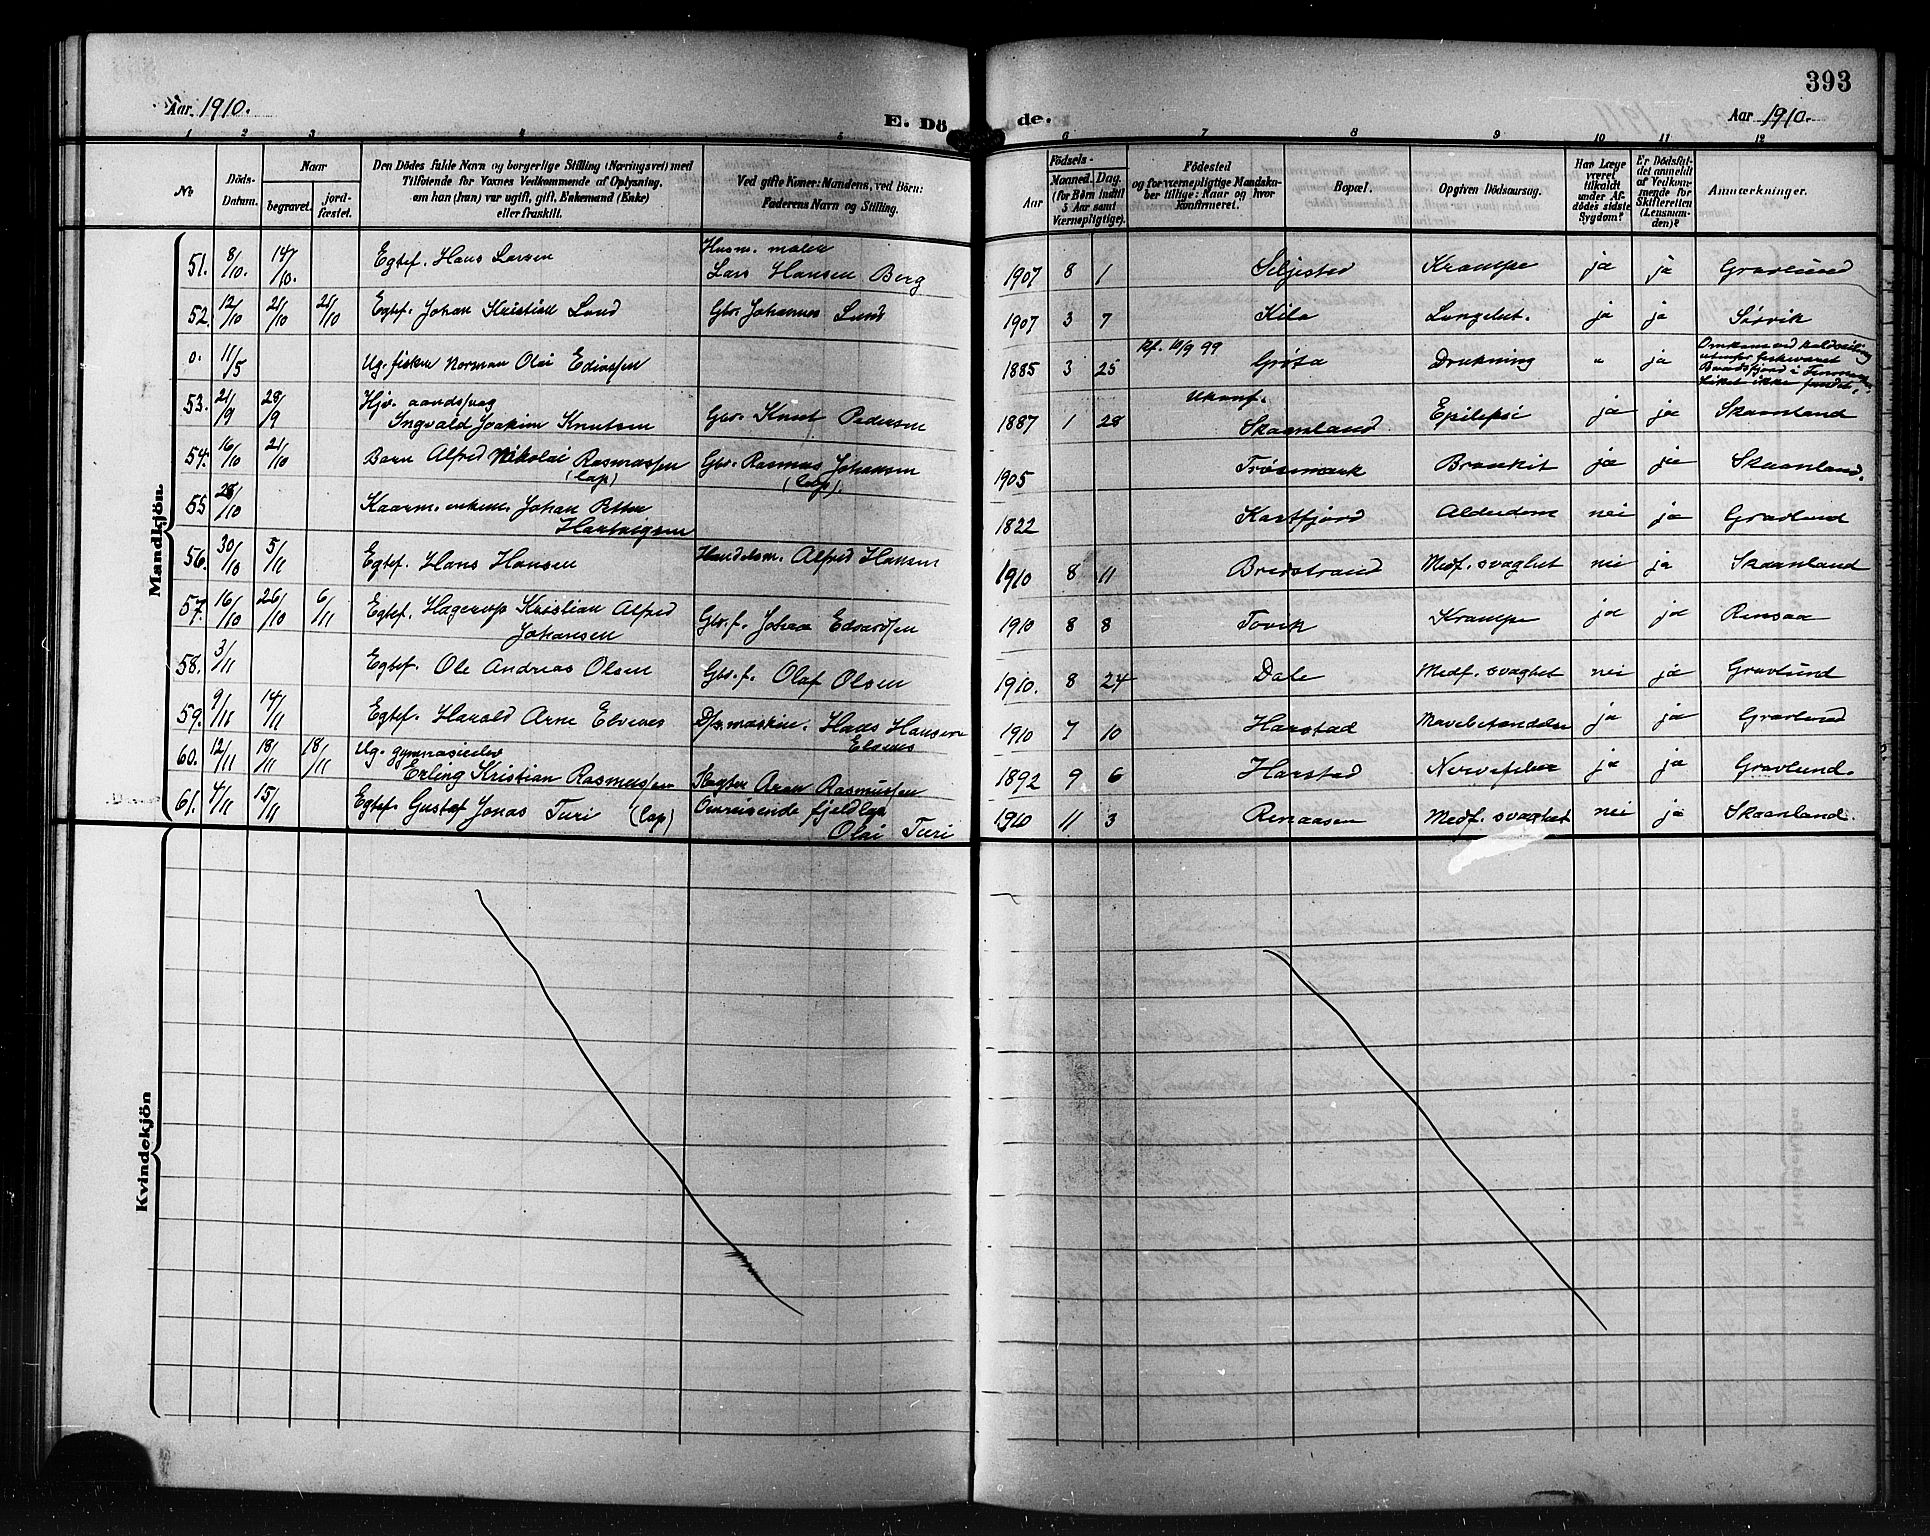 393
Aar 1910.
E. Dö de.
Aar 1910.
1 2 3 4 5 6 7 8 9 10 11 12
No
Döds-
Datum.
Naar
begravet.
jord-
fæstet.
Den Dödes fulde Navn og borgerlige Stilling (Næringsvei) med
Tilföiende for Voxnes Vedkommende af Oplysning,
om han (hun) var ugift, gift, Enkemand (Enke)
eller fraskilt.
Ved gifte Koner: Mandens, ved Börn:
Faderens Navn og Stilling.
Födsels-
Aar
Maaned. Dag.
(for Börn indtil
5 Aar samt
Værnepligtige).
Födested
og for værnepligtige Mandska-
ber tillige: Naar og hvor
konfirmeret.
Bopæl.
Opgiven Dödsaarsag.
Har Læge
været
tilkaldt
under Af-
dödes sidste
Sygdom?
Er Dödsfal-
det anmeldt
af Vedkom-
mende for
Skifteretten
(Lensman-
den)?
Anmærkninger.
Mandkjön.
51. 8/10. 14/10. Egtef. Hans Larsen Husm. maler
Lars Hansen Berg 1907 8 1 Siljestad Krampe ja ja Gravlund
52. 12/10 21/10 21/10 Egtef. Johan Kristian Lund Gbr. Johannes Lund 1907 3 7 Kila Lungebet. ja ja Sørvik
0. 11/5 Ug. fisker Norman Olai Ediassen 1885 3 25 kf. 10/9 99 Grøta Drukning " ja Omkom ved
utenfor fiskeværet
Baadsfjord i
Liket ikke fundet.
53. 21/9 28/9 Hjv. aandssvag
Ingvald Joakim Knutsen Gbr. Knut Pedersen 1887 1 28 Ukonf. Skaanland Epilepsi ja ja Skaanland
54. 16/10 21/10 Barn Alfred Nikolai Rasmussen
(lap) Gbr. Rasmus Johansen
(lap). 1905 Trøsemark Bronkit ja ja Skaanland.
55 28/10 Kaarm. enkem. Johan Petter
Hartvigsen 1822 Kastfjord Alderdom nei ja Gravlund
56. 30/10 5/11 Egtef. Hans Hansen Handelsm. Alfred Hansen 1910 8 11 Breistrand Medf. svaghet nei ja Skaanland
57. 16/10 26/10 6/11 Egtef. Hagerup Kristian Alfred
Johansen Gbr. f. Johan Edvardsen 1910 8 8 Tovik Krampe ja ja Rensaa
58. 3/11 Egtef. Ole Andreas Olsen Gbr. f. Olaf Olsen 1910. 8 24 Dale Medf. svaghet nei ja Gravlund
59. 9/11 14/11 Egtef. Harald Arne Elvenes D/s maskin. Hans Hansen
Elvenes 1910 7 10 Harstad Mavebetændelse ja ja Gravlund
60. 12/11 18/11 18/11 Ug. gymnasieelev
Erling Kristian Rasmussen Aron Rasmussen 1892 9 6 Harstad Nervefeber ja ja Gravlund.
61. 4/11 15/11 Egtef. Gustaf Jonas Turi (lap) Omreisende fjeldlap
Olai Turi 1910 11 3 Renaasen Medf. svaghet nei ja Skaanland.
Kvindekjön